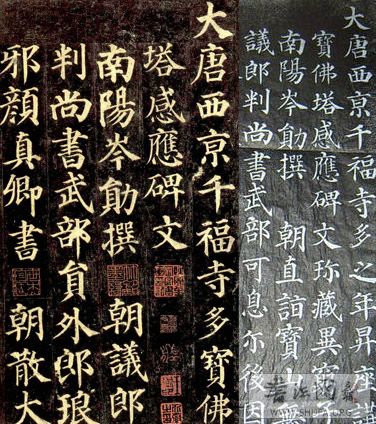 大唐西亰千福寺多之年昇座講
寶佛塔感應碑文珎藏異寶
南陽岑勛撰 朝直詣寶山
議郎判尚書武部可息亦後因
大唐西亰千福寺多寶佛
塔感應碑文
南陽岑勛撰 朝議郎
判尚書武部貟外郎琅
邪顏真卿書 朝散大
WWW.SHUFA.ORG